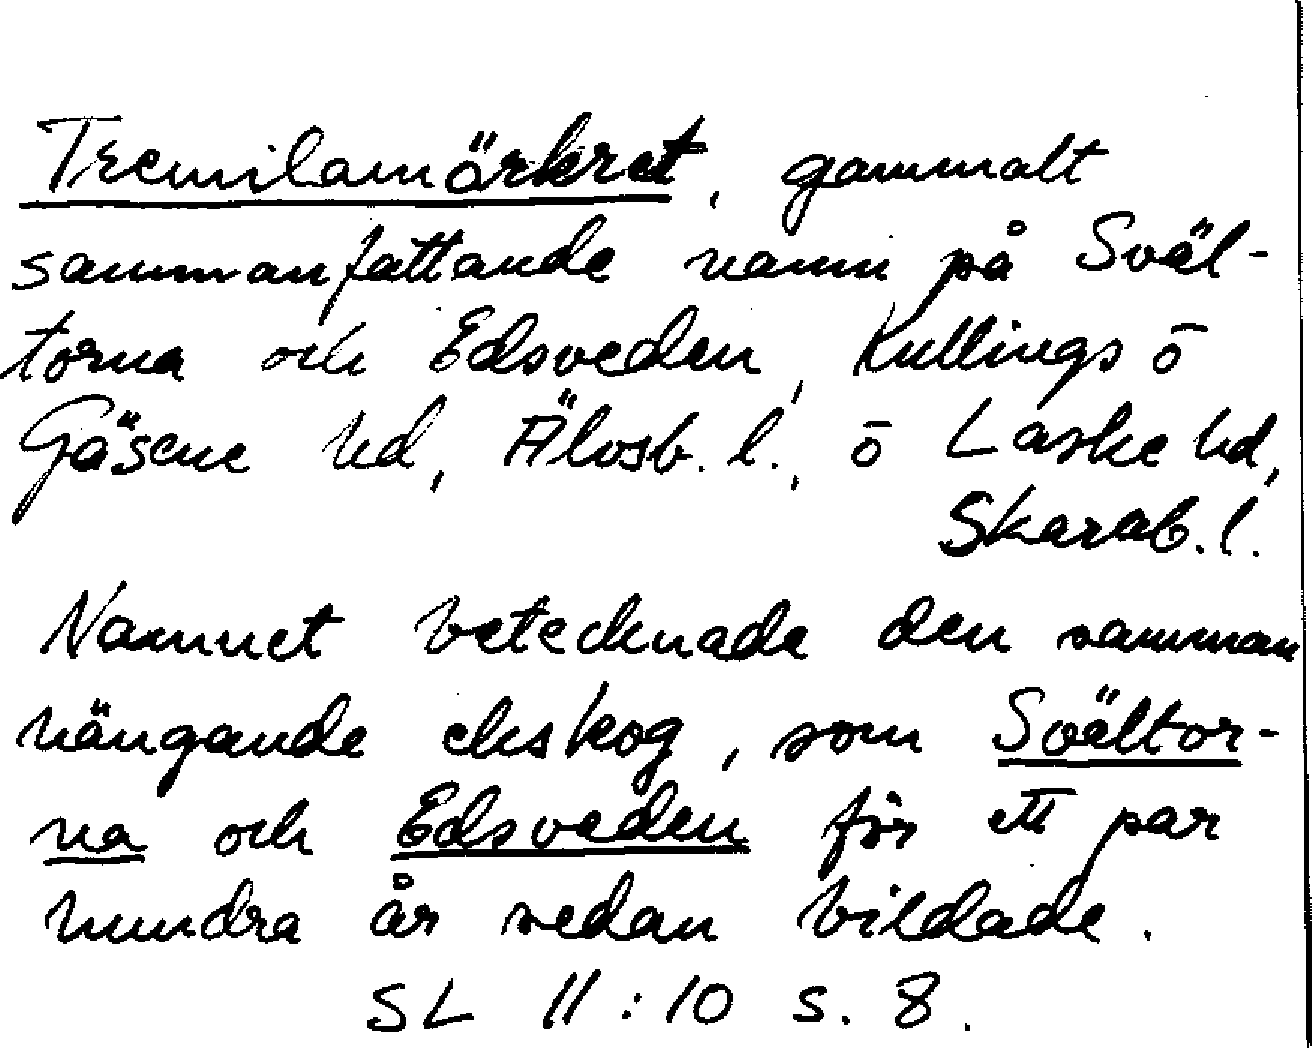 Tremilamörkret, gammalt
sammanfattande namn på Sväl-
torna och Edsveden, Kullings o
Gäsene hd, Älvsb. l., o Laske hd,
Skarab. l.
Namnet betecknade den samman
hängande ekskog, som Svältor-
na och Edsveden för ett par
hundra år sedan bildade.
SL 11:10 s. 8.